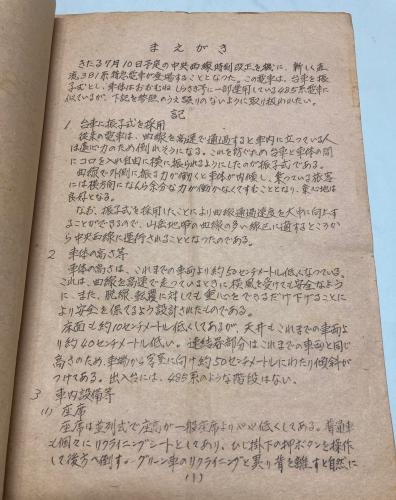 まえがき
きたる7月10日予定の中央西線時刻改正を機に、新しく直
流381系特急電車が登場することとなった。この電車は、台車を振
子式とし、車体はおおむねしらさぎ号に一部使用している485系電車に
似ているが、下記を参照のうえ誤りのないように取り扱われたい。
記
1 台車に振子式を採用
従来の電車は、曲線を高速で通過すると車内に立っている人
は遠心力のため倒れそうになる。これを防ぐため台車と車体の間
にコロを入れ自由に横に振られるようにしたのが振子式である。
曲線で外側に振る力が働くと車体が内傾し、乗っている旅客
には横方向になんら余分な力が働かなくてすむこととなり、乗心地は
良好となる。
なお、振子式を採用したことにより曲線通過速度を大巾に向上す
ることができるので、山岳地帯の曲線の多い線区に適するところか
ら中央西線に運行されることとなったのである。
2 車体の高さ等
車体の高さは、これまでの車両より約50センチメートル低くなっている。
これは、曲線を高速で走っているときに横風を受けても安全なよう
に、また、脱線、転覆に対しても重心をできるだけ下げることに
より安全を保てるよう設計されたものである。
床面も約10センチメートル低くしてあるが、天井もこれまでの車両より
約40センチメートル低い。連結部分はこれまでの車両と同じ
高さのため、車端から客室に向け約50センチメートルにわたり傾斜が
つけてある。出入台には、485系のような階段はない。
3 車内設備等
(1) 座席
座席は並列式で座高が一般座席より心もち低くしてある。普通車
も個々にリクライニングシートとしてあり、ひじ掛下の押ボタンを操作
して後方へ倒す。グリーン車のリクライニングと異り背を離すと自然に
(1)